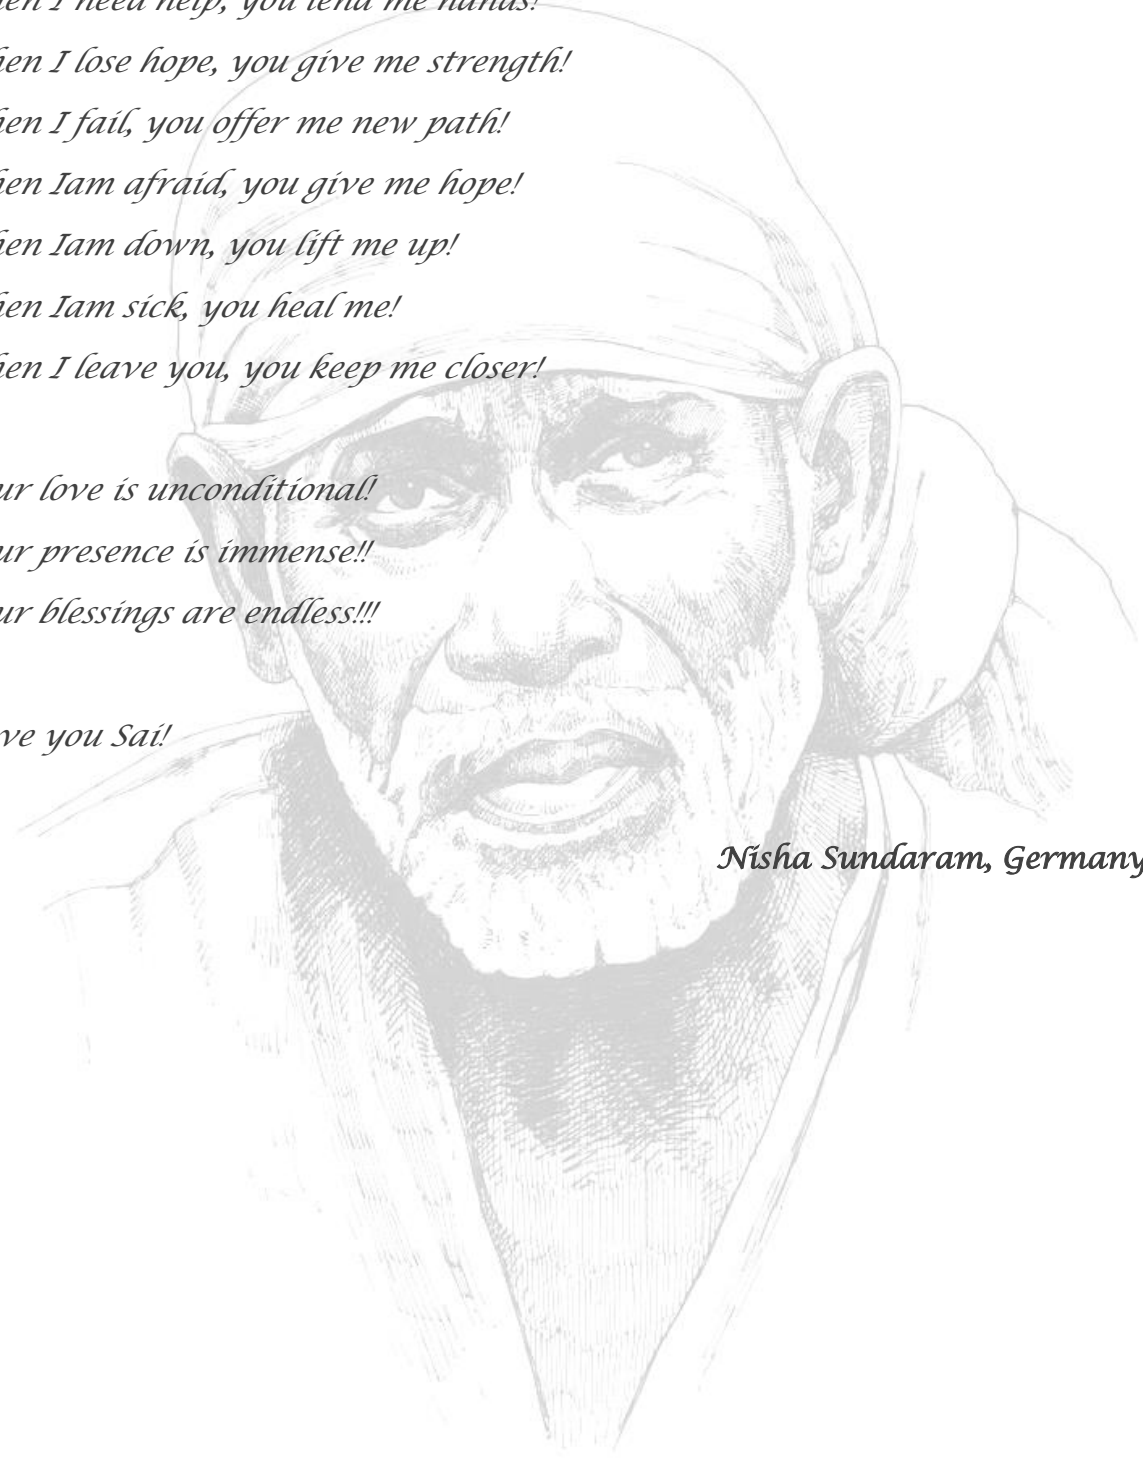 hen I need help, you lend me hands!
hen I lose hope, you give me strength!
hen I fail, you offer me new path!
hen Iam afraid, you give me hope!
hen Iam down, you lift me up!
hen Iam sick, you heal me!
hen I leave you, you keep me closer!
ur love is unconditional!
ur presence is immense!!
ur blessings are endless!!!
ve you Sai!
Nisha Sundaram, Germany